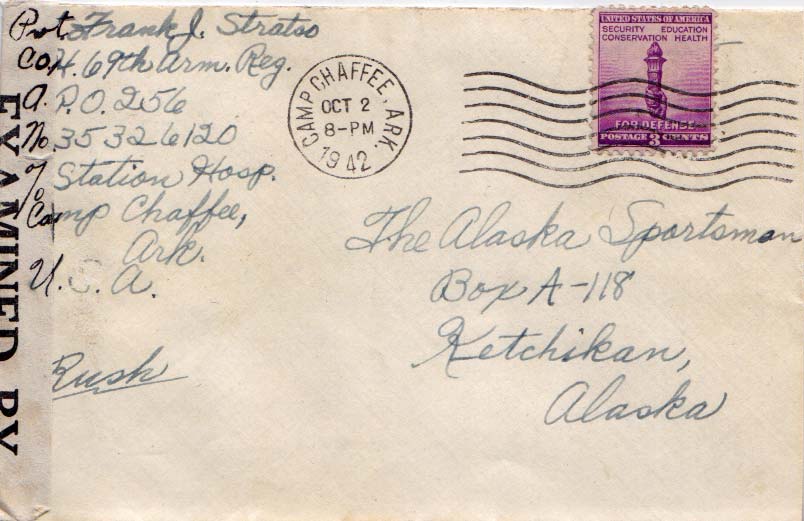 Pvt. Frank J. Stratso
Co. H. 69th Arm. Reg.
A. P.O. 256
No. 35326120
% Station Hosp.
Camp Chaffee,
Ark.
U. S. A.
Rush
EXAMINED BY
CAMP CHAFFEE, ARK.
OCT 2
8-PM
1942
UNITED STATES OF AMERICA
SECURITY EDUCATION
CONSERVATION HEALTH
FOR DEFENSE
POSTAGE 3 CENTS
The Alaska Sportsman
Box A-118
Ketchikan,
Alaska